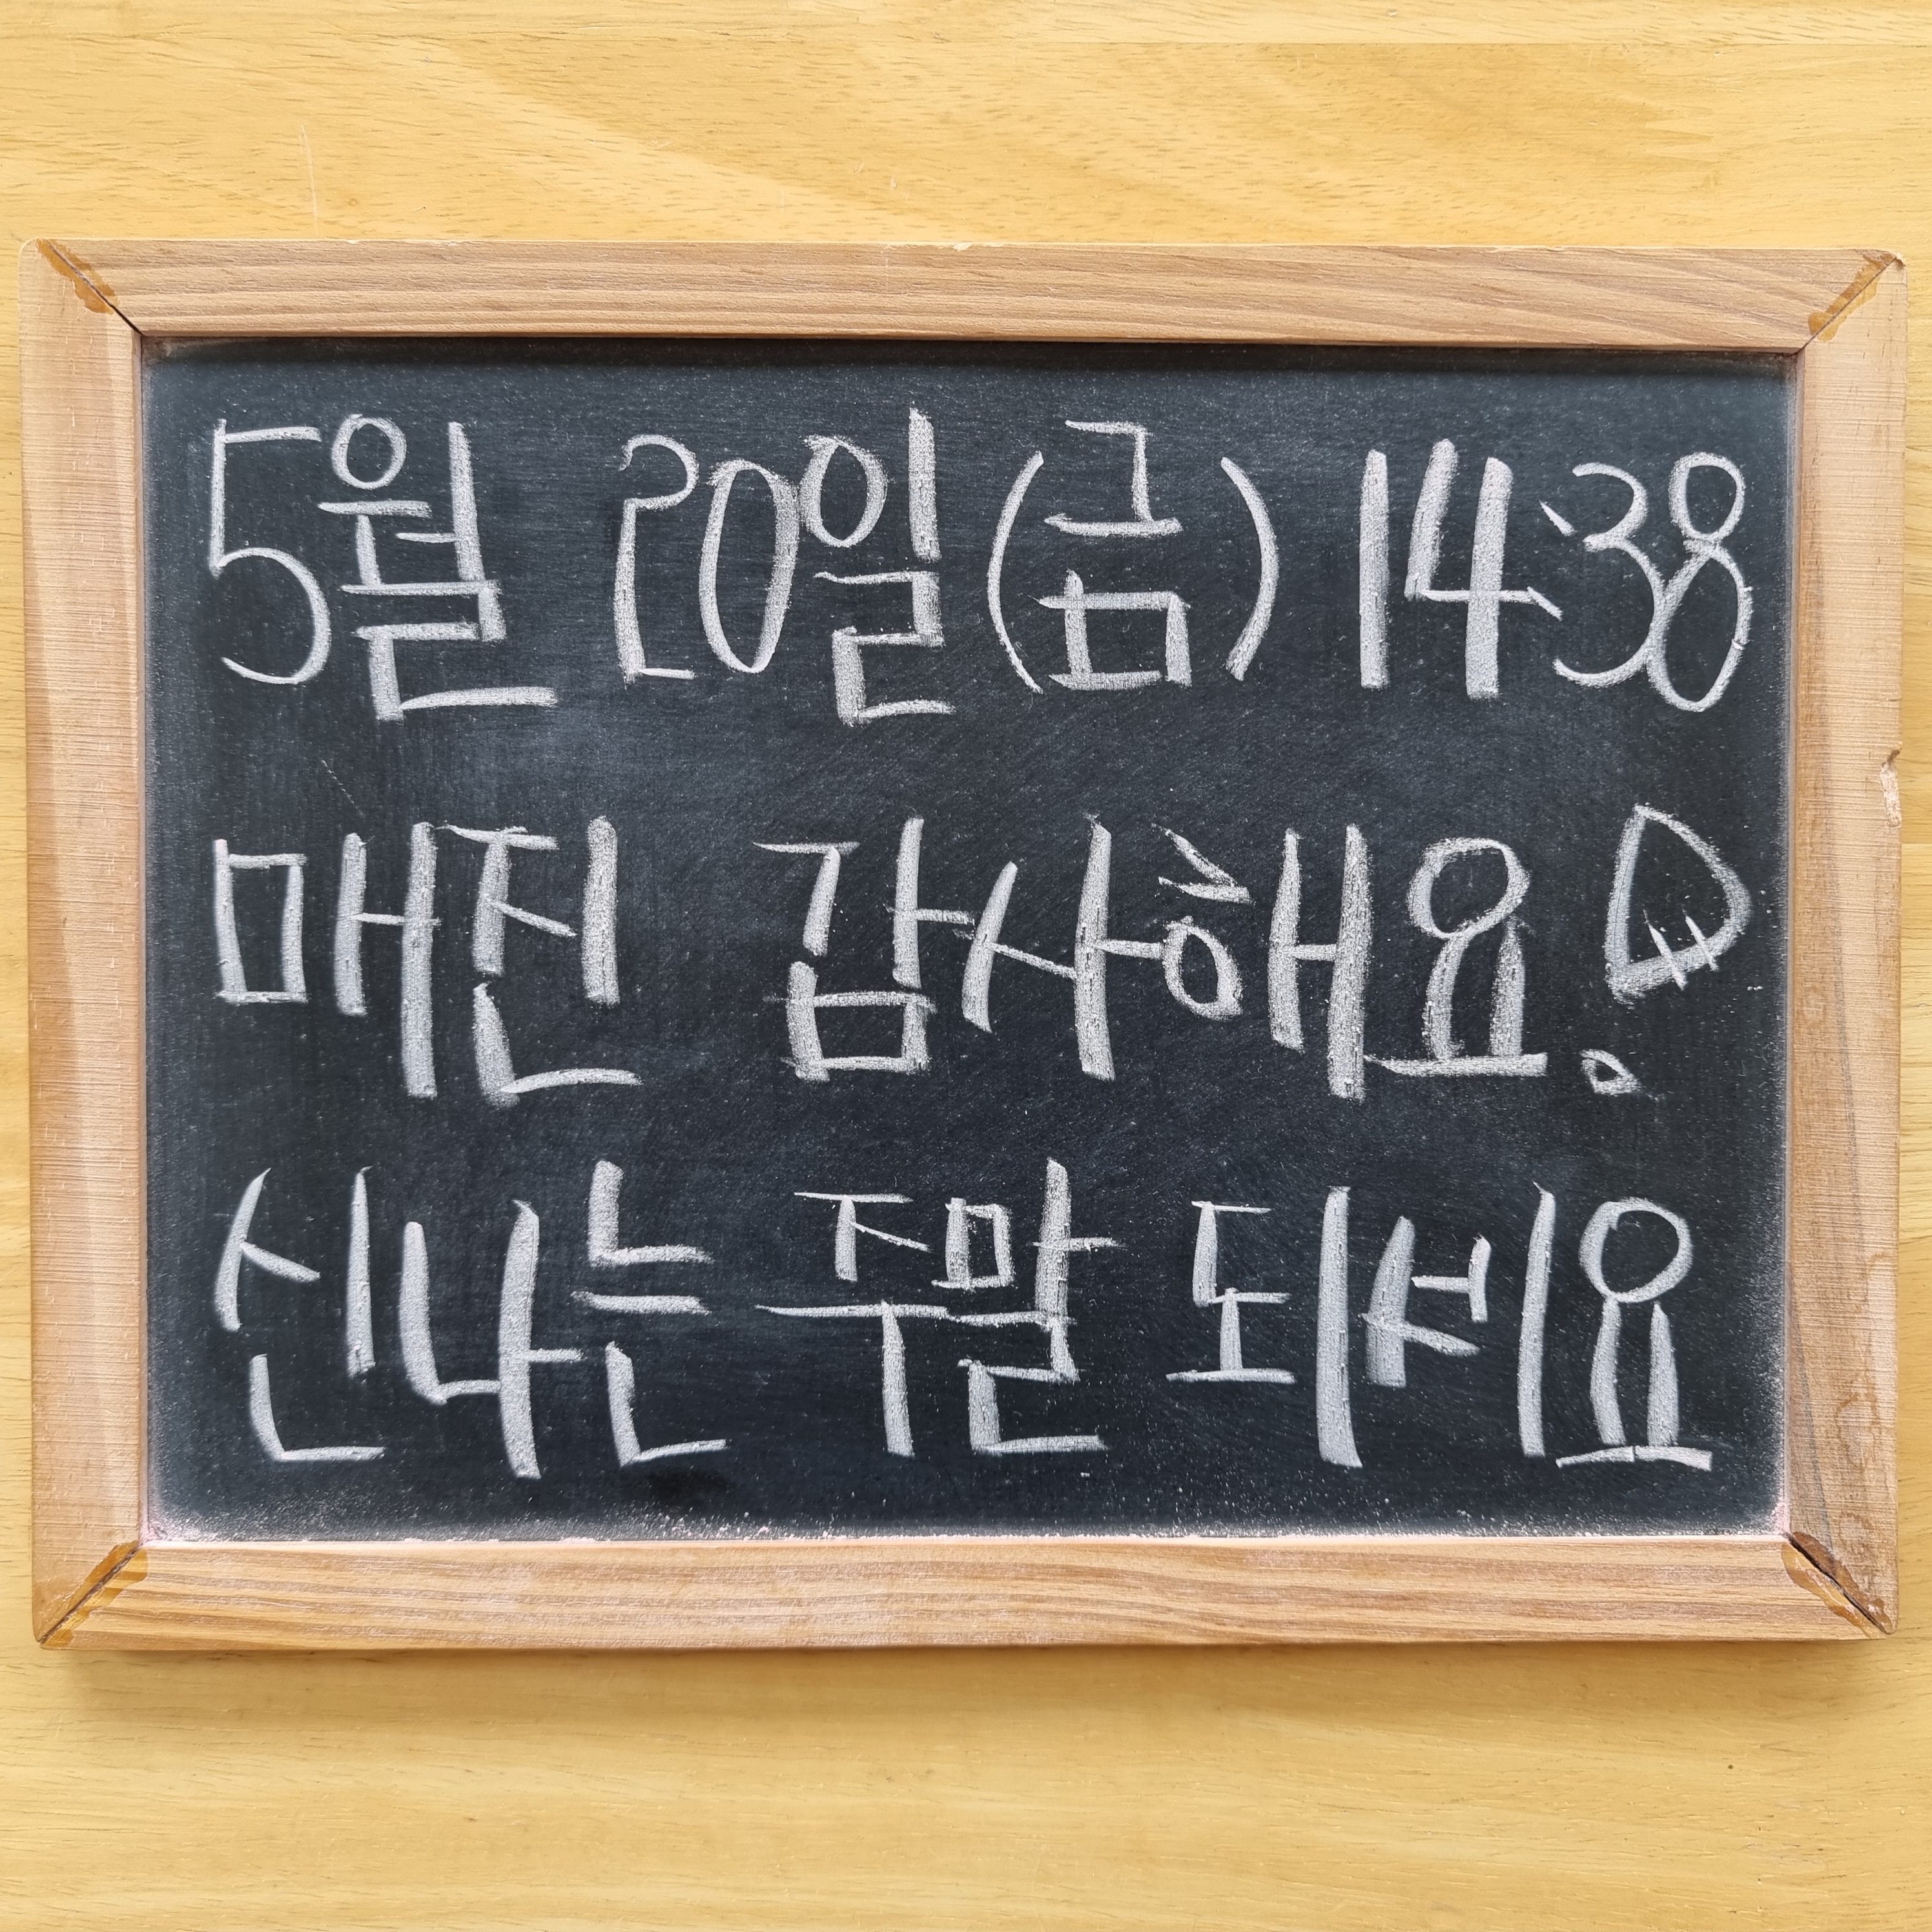 5월 20일(금) 1438
매진 감사해요!
신나는 주말 되세요